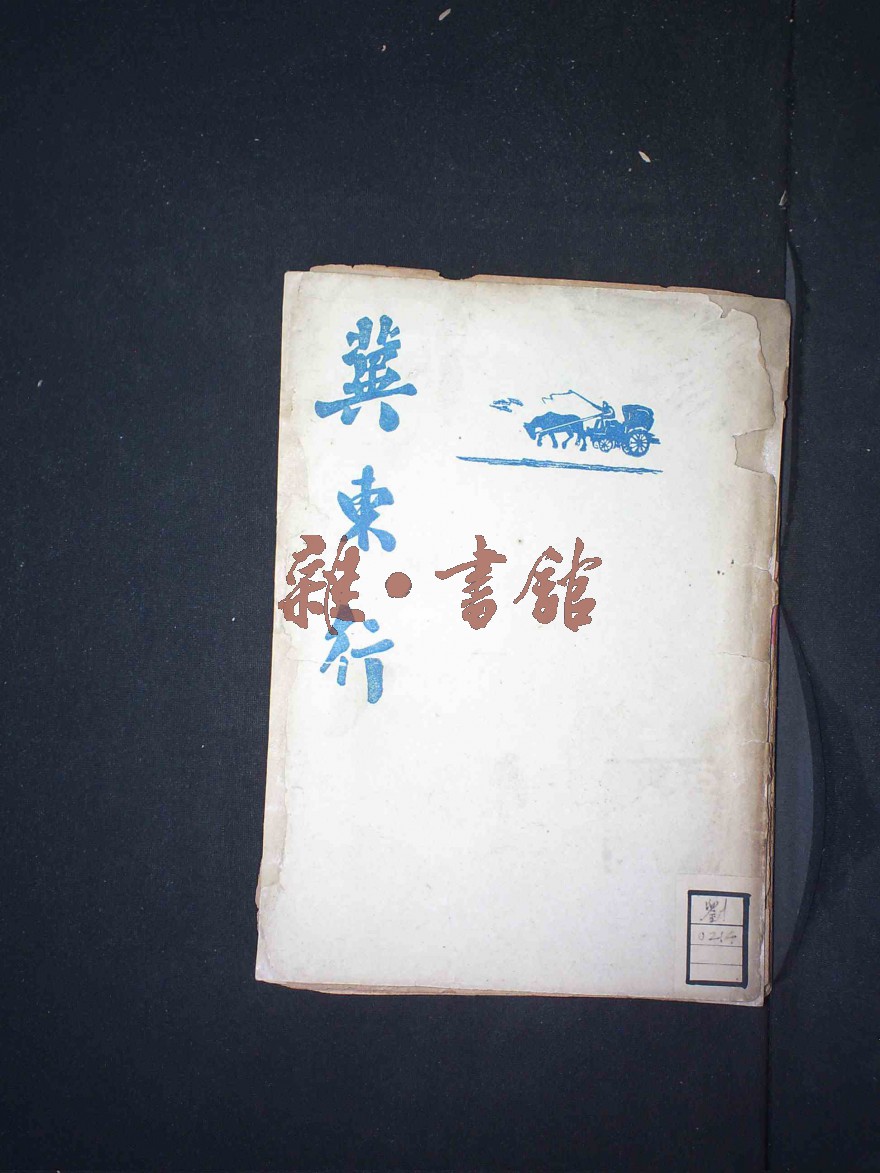 冀東行
雜·書館
劉
0214